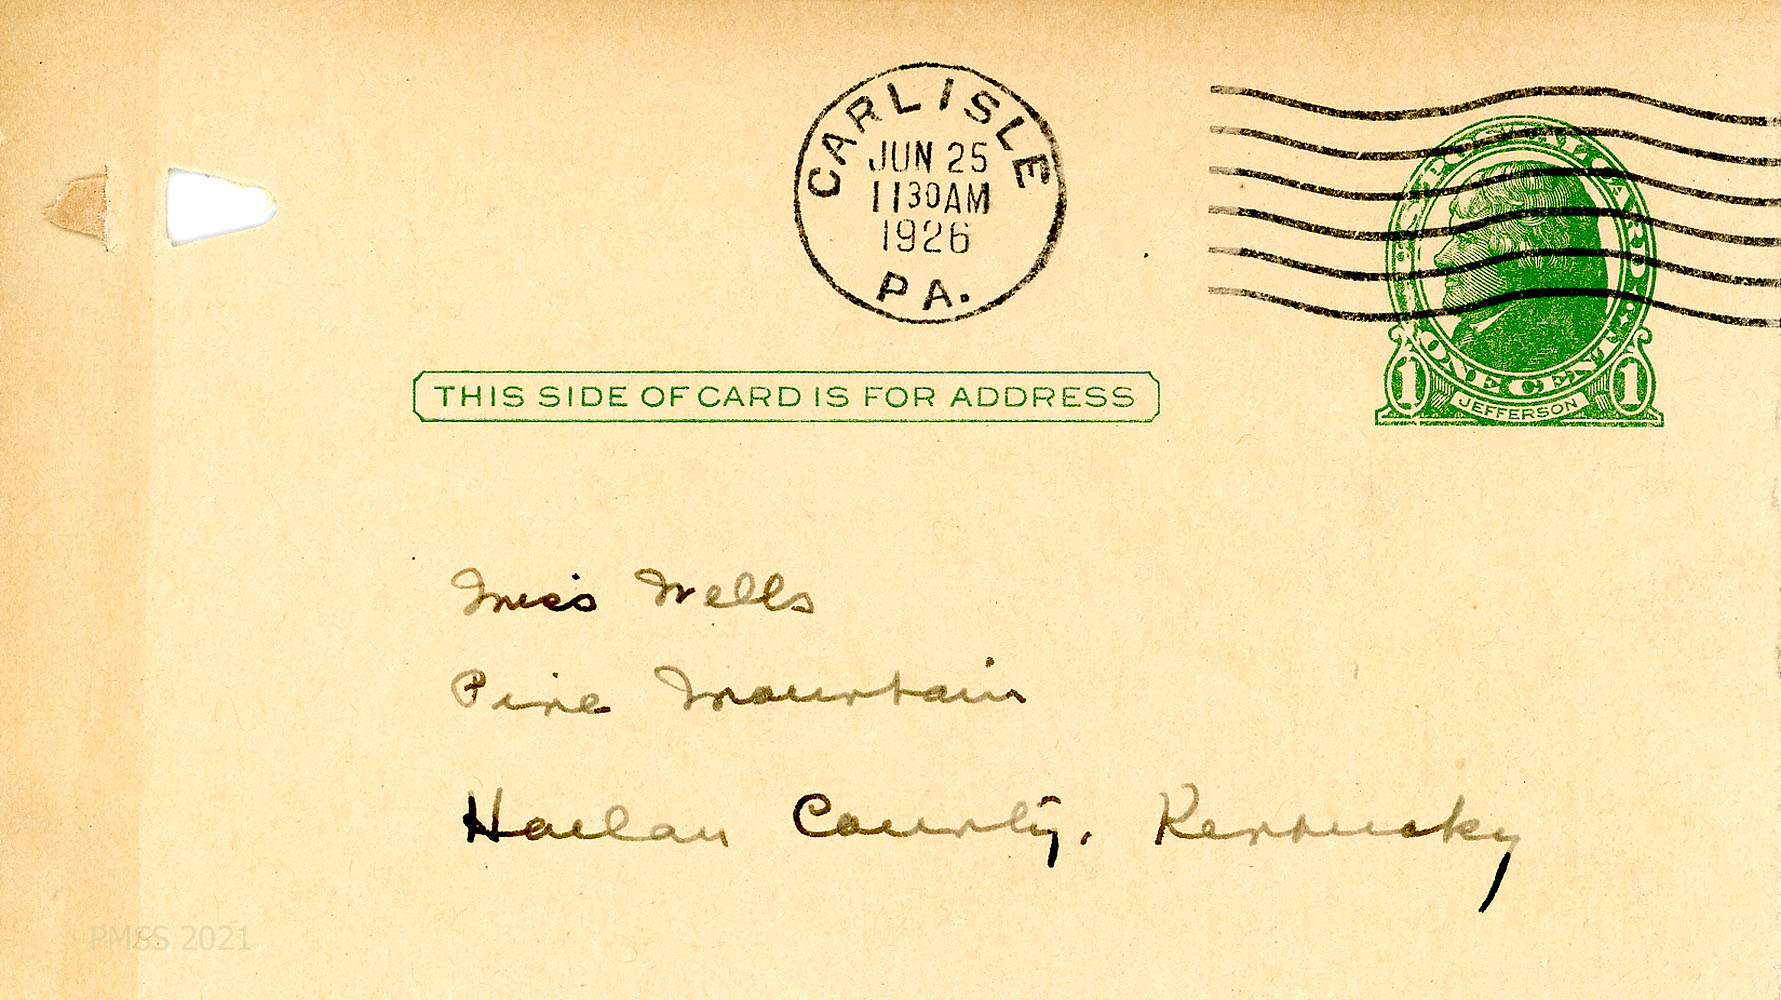 CARLISLE
JUN 25
1130AM
1926
PA.
ONE CENT
1 1
JEFFERSON
THIS SIDE OF CARD IS FOR ADDRESS
Miss Wells
Pine Mountain
Harlan County, Kentucky
PMSS 2021